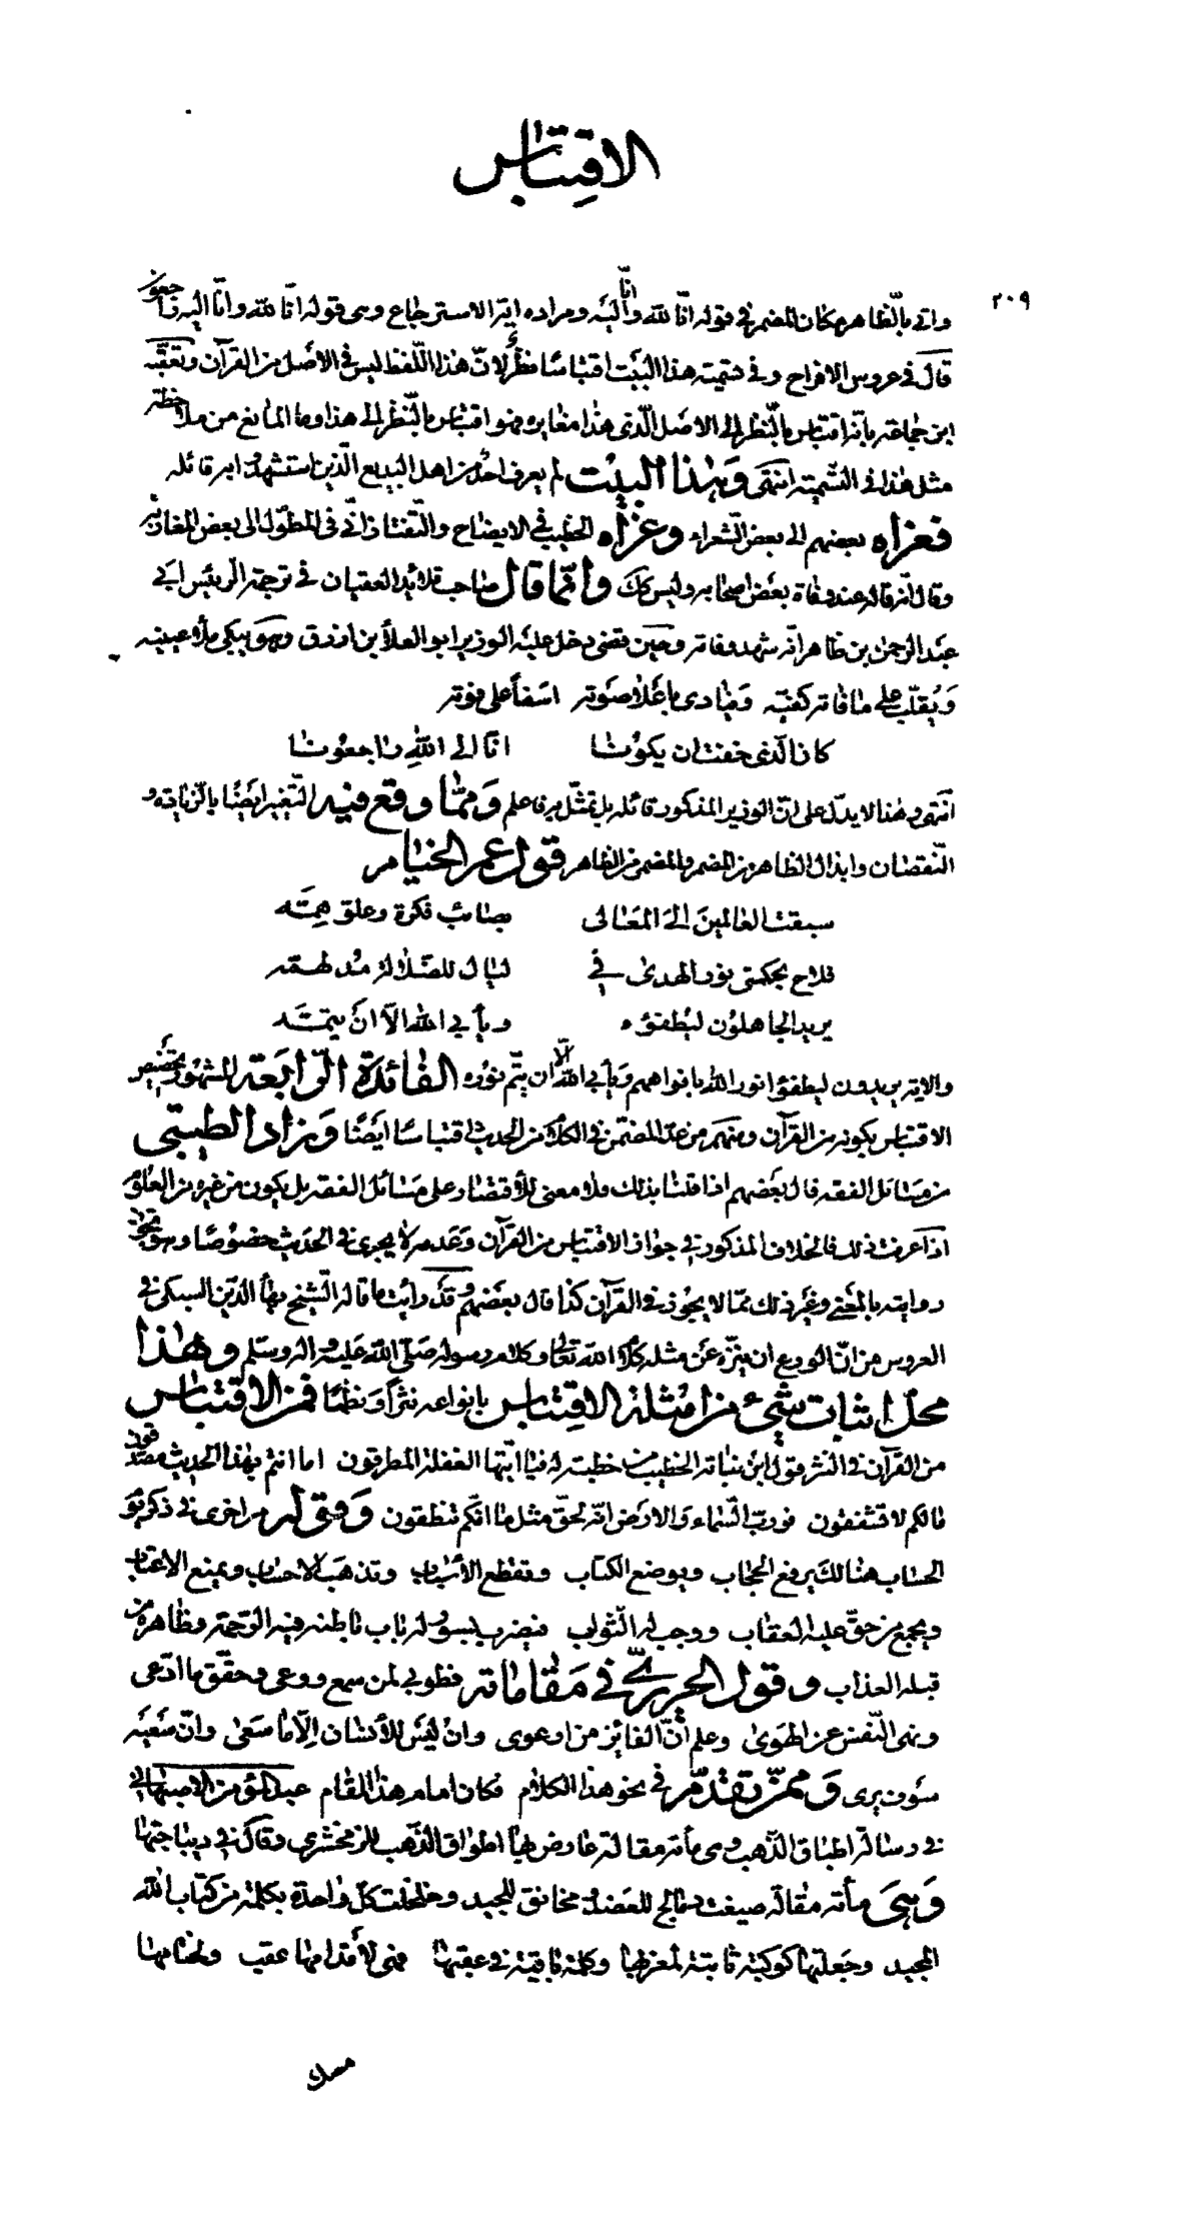 الاقتباس
٢٠٩
واتى بالظاهر مكان المضمر في قوله انّا لله وانّا اليه ومراده اية الاسترجاع وهى قوله انّا لله وانّا اليه راجعون
قال في عروس الافراح وفى تسمية هذا البيت اقتباسًا نظرٌ لانّ هذا اللّفظ ليس في الاصل من القرآن وتعقّبه
ابن جماعة بانّه اقتباس بالنّظر الى الاصل الّذى هذا مغايره فهو اقتباس بالنّظر الى هذا وما المانع من ملاحظة
مثل هذا في التّسمية انتهى وهذا البيت لم يعرف احدٌ من اهل البديع الّذين استشهدوا به قائله
فعزاه بعضهم الى بعض الشّعراء وعزاه الخطيب في الايضاح والتّفتازانى في المطوّل الى بعض المغاربة
وقال انّه قاله عند وفاة بعض اصحابه وليس كك وانّما قال صاحب قلائد العقيان في ترجمة الرّئيس ابى
عبد الرحمن بن طاهر انّه شهد وفاته وحين قضى دخل عليه الوزير ابو العلاء بن ازرق وهو يبكى ملأ عينيه
ويقلّب على ما فاته كفّيه وينادى باعلا صوته اسفاً على فوته
كان الّذى خفت ان يكونا انّا الى الله راجعونا
انتهى وهذا لا يدلّ على انّ الوزير المذكور قائله بل تمثّل به فاعلم وممّا وقع فيه التّغيير ايضًا بالزّيادة و
النّقصان وابدال الظاهر من المضمر والمضمر من الظاهر قول عمر الخيّام
سبقت العالمين الى المعالى بصائب فكرة وعلوّ همّه
فلاح بحكمتى نور الهدى في ليال للضّلالة مدلهمّه
يريد الجاهلون ليطفؤه ويأبى الله الّا ان يتمّه
والاية يريدون ليطفؤا نور الله بافواههم ويأبى الله الّا ان يتمّ نوره الفائدة الرّابعة المشهور تخصيص
الاقتباس بكونه من القرآن ومنهم من عدّ المضمّن في الكلام من الحديث اقتباسًا ايضًا وزاد الطيبى
من مسائل الفقه قال بعضهم اذا قلنا بذلك فلا معنى للأقتصار على مسائل الفقه بل يكون من غيره من العلوم
اذا عرفت ذلك فالخلاف المذكور في جواز الاقتباس من القرآن وعدمه لا يجرى في الحديث خصوصًا وهو تجوز
روايته بالمعنى وغير ذلك ممّا لا يجوز في القرآن كذا قال بعضهم وقد رأيت ما قاله الشّيخ بهاء الدّين السبكى في
العروس من انّ الورع ان ينزّه عن مثله كلام الله تعالى وكلام رسوله صلّى الله عليه واله وسلم وهذا
محلّ اثبات شيء من امثلة الاقتباس بانواعه نثراً ونظمًا فمن الاقتباس
من القرآن في النثر قول ابن نباته الخطيب من خطبته له فيا ايّها الغفلة المطرقون اما انتم بهذا الحديث مصدّقون
مالكم لا تشفقون فوربّ السّماء والارض انّه لحقّ مثل ما انّكم تنطقون وقوله من اخرى في ذكر يوم
الحساب هنالك يرفع الحجاب ويوضع الكتاب وتقطع الأسباب وتذهب الاحساب ويمنع الاعتاب
ويجمع من حقّ عليه العقاب ووجب له الثّواب فيضرب بينهم بسور له باب باطنه فيه الرّحمة وظاهره من
قبله العذاب وقول الحريرىّ في مقاماته فطوبى لمن سمع ووعى وحقّق ما ادّعى
ونهى النّفس عن الهوى وعلم انّ الفائز من ارعوى وان ليس للأنسان الّا ما سعى وانّ سعيه
سوف يرى وممّن تقدّم في نحو هذا الكلام فكان امام هذا المقام عبد المؤمن الاصبهانى
في رسالة اطباق الذّهب وهى مأة مقالة عارض بها اطواق الذّهب للزمخشرى وقال في ديباجتها
وهى مأة مقالة صيغت دمالج للعضد ومخانق للجيد وخلخلت كلّ واحدة بكلمة من كتاب الله
المجيد وجعلتها كوكبة ثابتة لمغربها وكلمة باقية في عقبها فهى لأقدامها عقب ولختامها
مسك